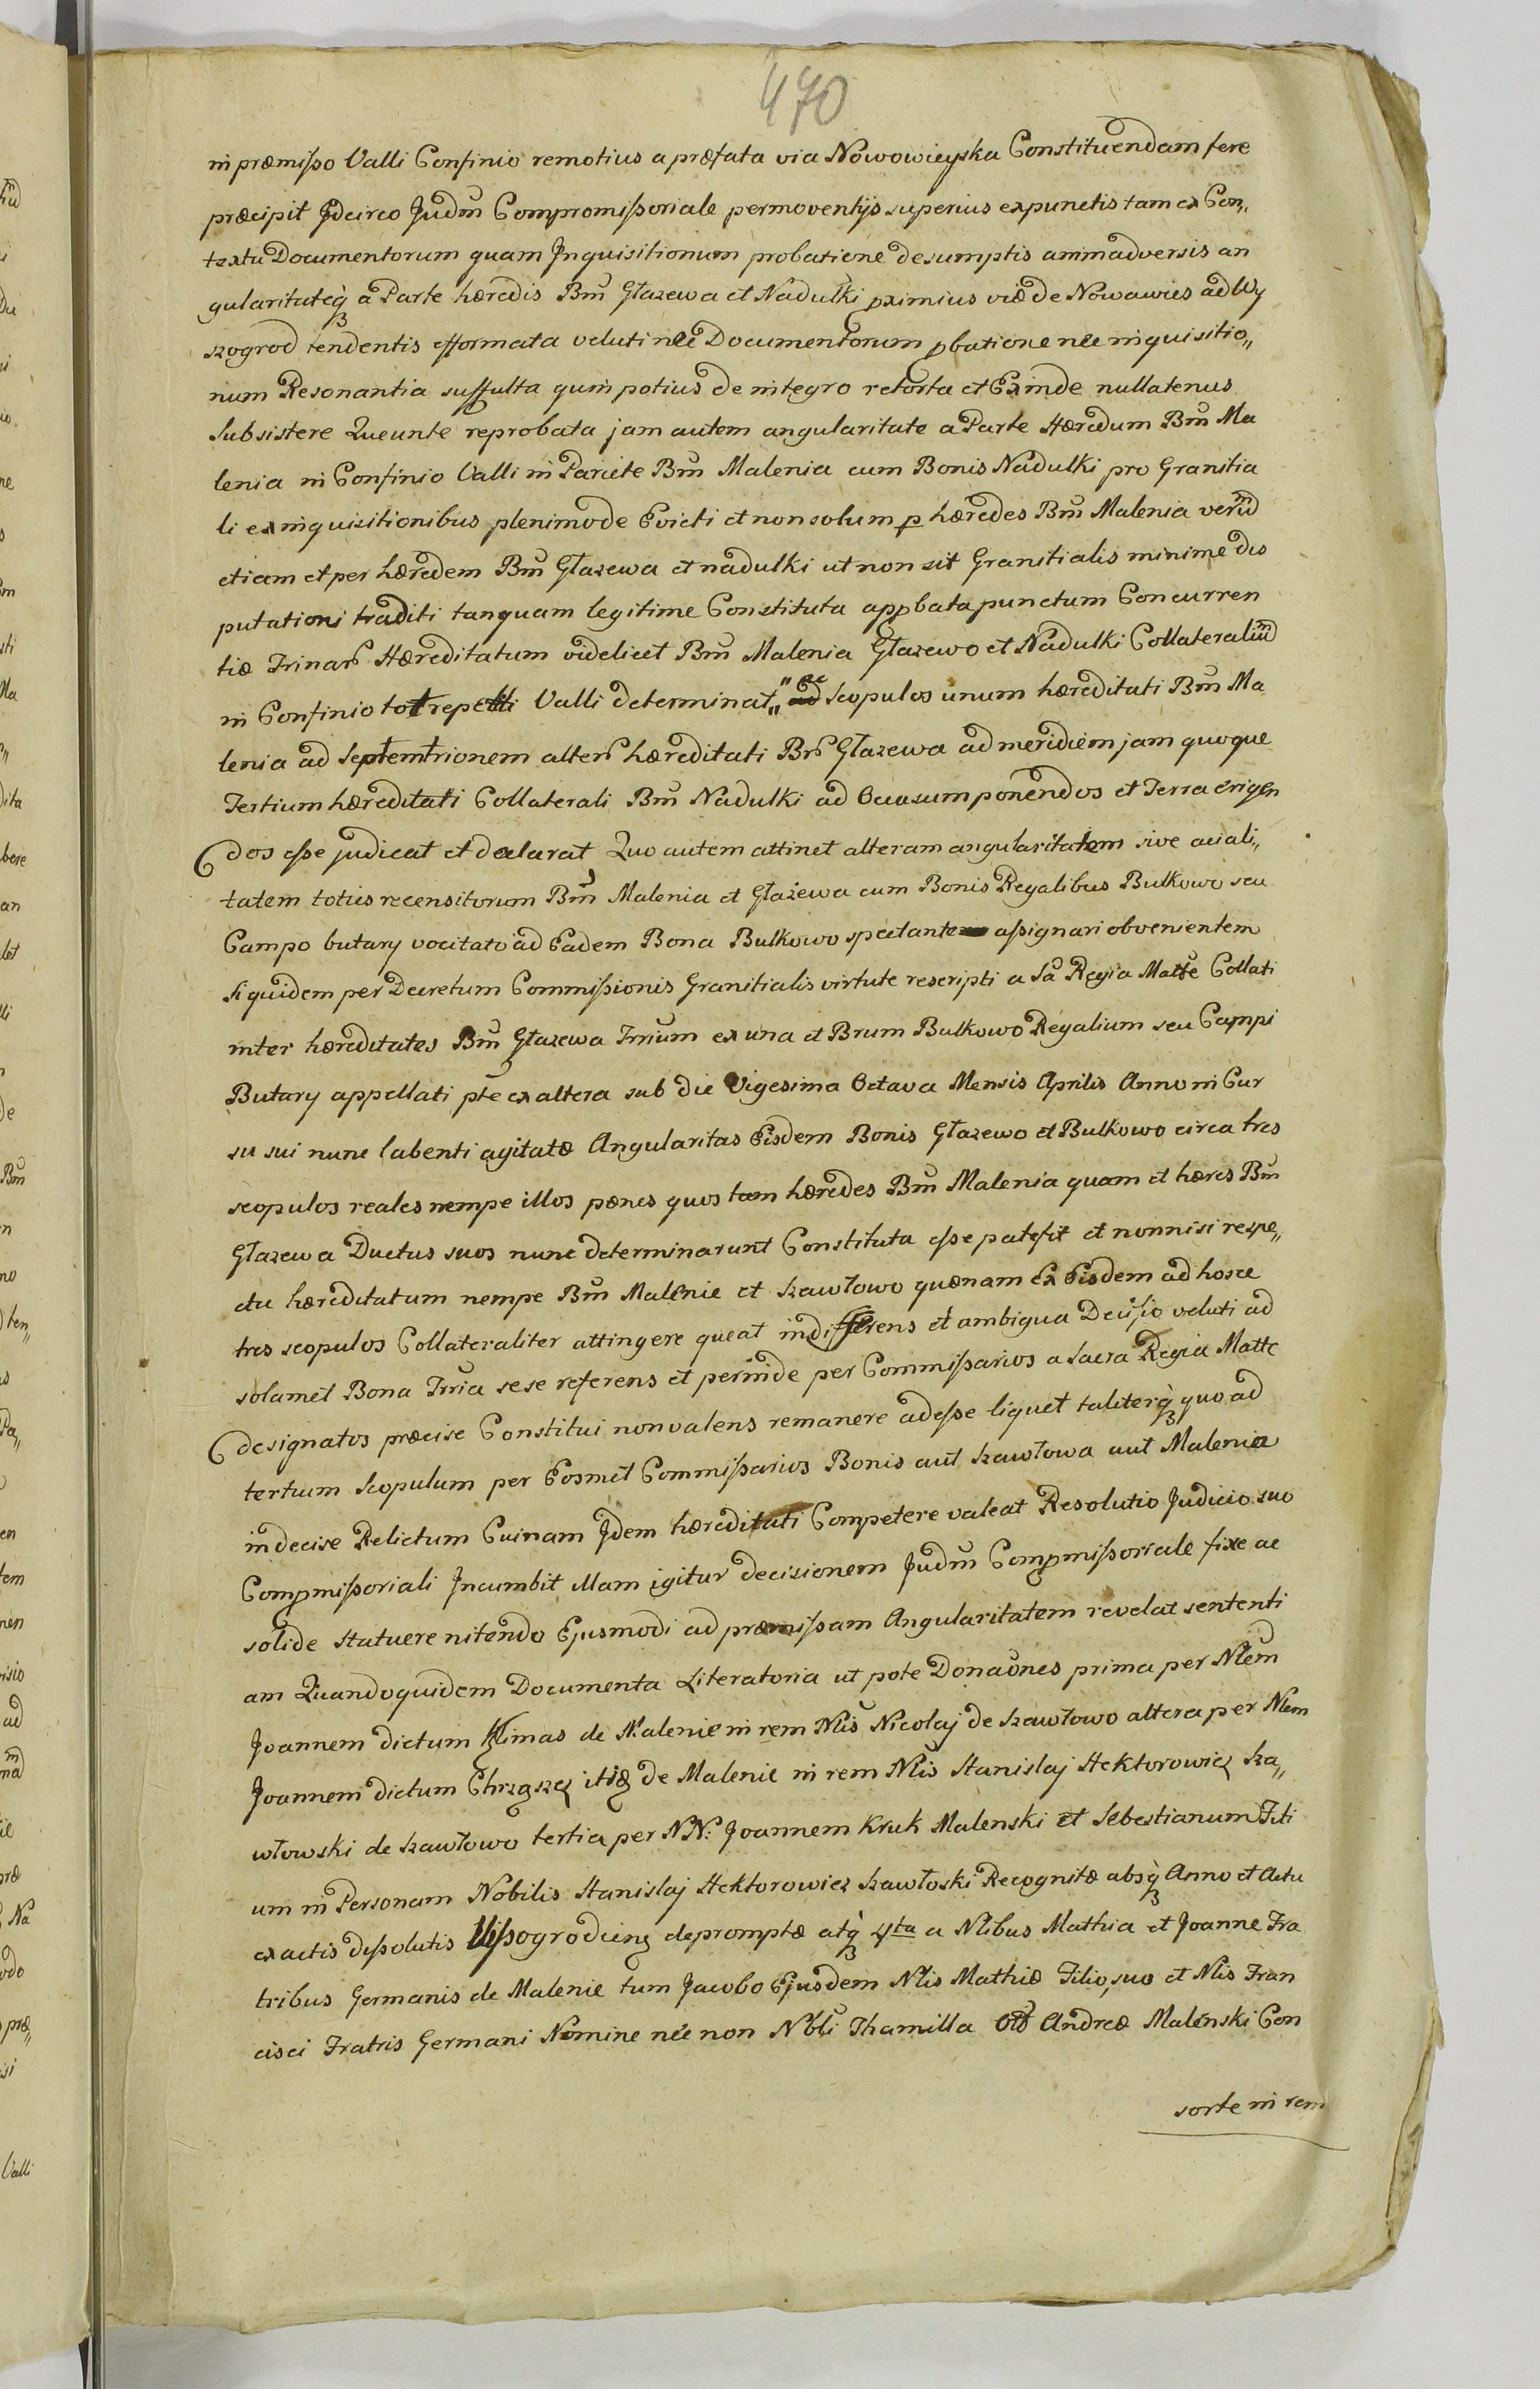 470
in præmisso Valli Confinio remotius a præfata via Nowowieyska Constituendam fere
præcipit Idcirco Judm̃ Compromissoriale permoventijs superius expunctis tam ex Con„
textu Documentorum quam Inquisitionum probatione desumptis animadversis an
gularitateq̀ a Parte hæredis Bm̃ Głazewa et Nadułki pximius viæ de Nowawies ad Wy
szogrod tendentis efformata veluti nec Documentorum pbatione nec inquisitio„
num Resonantia suffulta quin potius de integro retorta et Exinde nullatenus
Subsistere Queunte reprobata jam autem angularitate a Parte Hæredum Bm̃ Ma
lenia in Confinio Valli in Pariete Bm̃ Malenia cum Bonis Nadułki pro Granitia
li ex inquisitionibus plenimode Evicti et non solum p hæredes Bm̃ Malenia verum̃
etiam et per hæredem Bm̃ Głazewa et nadulki ut non sit Granitialis minime dis
putationi traditi tanquam legitime Constituta appbata punctum Concurren
tiæ Trinar̃ Hæreditatum videlicet Bm̃ Malenia Głazewo et Nadulki Collateralium̃
in Confinio tot repetti Valli determinat„ ac Scopulos unum hæreditati Bm̃ Ma
lenia ad Septemtrionem alterũ hæreditati Br̃ Głazewa ad meridiem jam quoque
Tertium hæreditati Collaterali Bm̃ Nadulki ad Occasum ponendos et Terra erigen
dos esse judicat et declarat Quo autem attinet alteram angularitatem sive aciali„
tatem toties recensitorum Bm̃ Malenia et Głażewa cum Bonis Regalibus Bulkowo seu
Campo butary vocitato ad Eadem Bona Bulkowo spectante assignari obvenientem
Siquidem per Decretum Commissionis Granitialis virtute rescripti a Sã Regia Matte Collati
inter hæreditates Bm̃ Głazewa Trrium ex una et Brum Bulkowo Regalium seu Campi
Butary appellati pte ex altera sub die Vigesima Octava Mensis Aprilis Anno in Cur
su sui nunc labenti agitatæ Angularitas Eisdem Bonis Głazewo et Bulkowo circa tres
scopulos reales nempe illos pænes quos tam hæredes Bm̃ Malenia quam et hæres Bm̃
Głazewa Ductus suos nunc determinarunt Constituta esse patefit et nonnisi respe„
ctu hæreditatum nempe Bm̃ Malenie et Szawłowo quænam Ex Eisdem ad hosce
tres scopulos Collateraliter attingere queat indifferens et ambigua Decisio veluti ad
solamet Bona Trria sese referens et perinde per Commissarios a Sacra Regia Matte
designatos præcise Constitui non valens remanere adesse liquet taliterq̀ quo ad
tertium Scopulum per Eosmet Commissarios Bonis aut Szawłowa aut Malenia
indecise Relictum Cuinam Idem hæreditati Competere valeat Resolutio Judicio suo
Compmissoriali Incumbit illam igitur decisionem Judm̃ Compmissoriale fixe ac
solide statuere nitendo Ejusmodi ad præmissam Angularitatem revelat sententi
am Quandoquidem Documenta Literatoria ut pote Donaõnes prima per Nlem̃
Joannem dictum Klimas de Malenie in rem Nlis̃ Nicolaj de Szawłowo altera per Nlem
Joannem dictum Chrząszcz itid de Malenie in rem Nlis Stanislaj Hektorowicz Sza„
włowski de Szawłowo tertia per NN: Joannem Kruk Malenski et Sebestianum Titi
um in Personam Nobilis Stanislaj Hektorowicz Szawłoski Recognitæ absq̀ Anno et Actu
ex actis dissolutis Vissogrodien depromptæ atq̀ 4ta a Nlibus Mathia et Joanne Fra
tribus Germanis de Malenie tum Jacobo Ejusdem Nlis Mathiæ Filio suo et Nlis Fran
cisci Fratris Germani Nomine nec non Nbli Thamilla Andreæ Maleński Con
sorte in rem